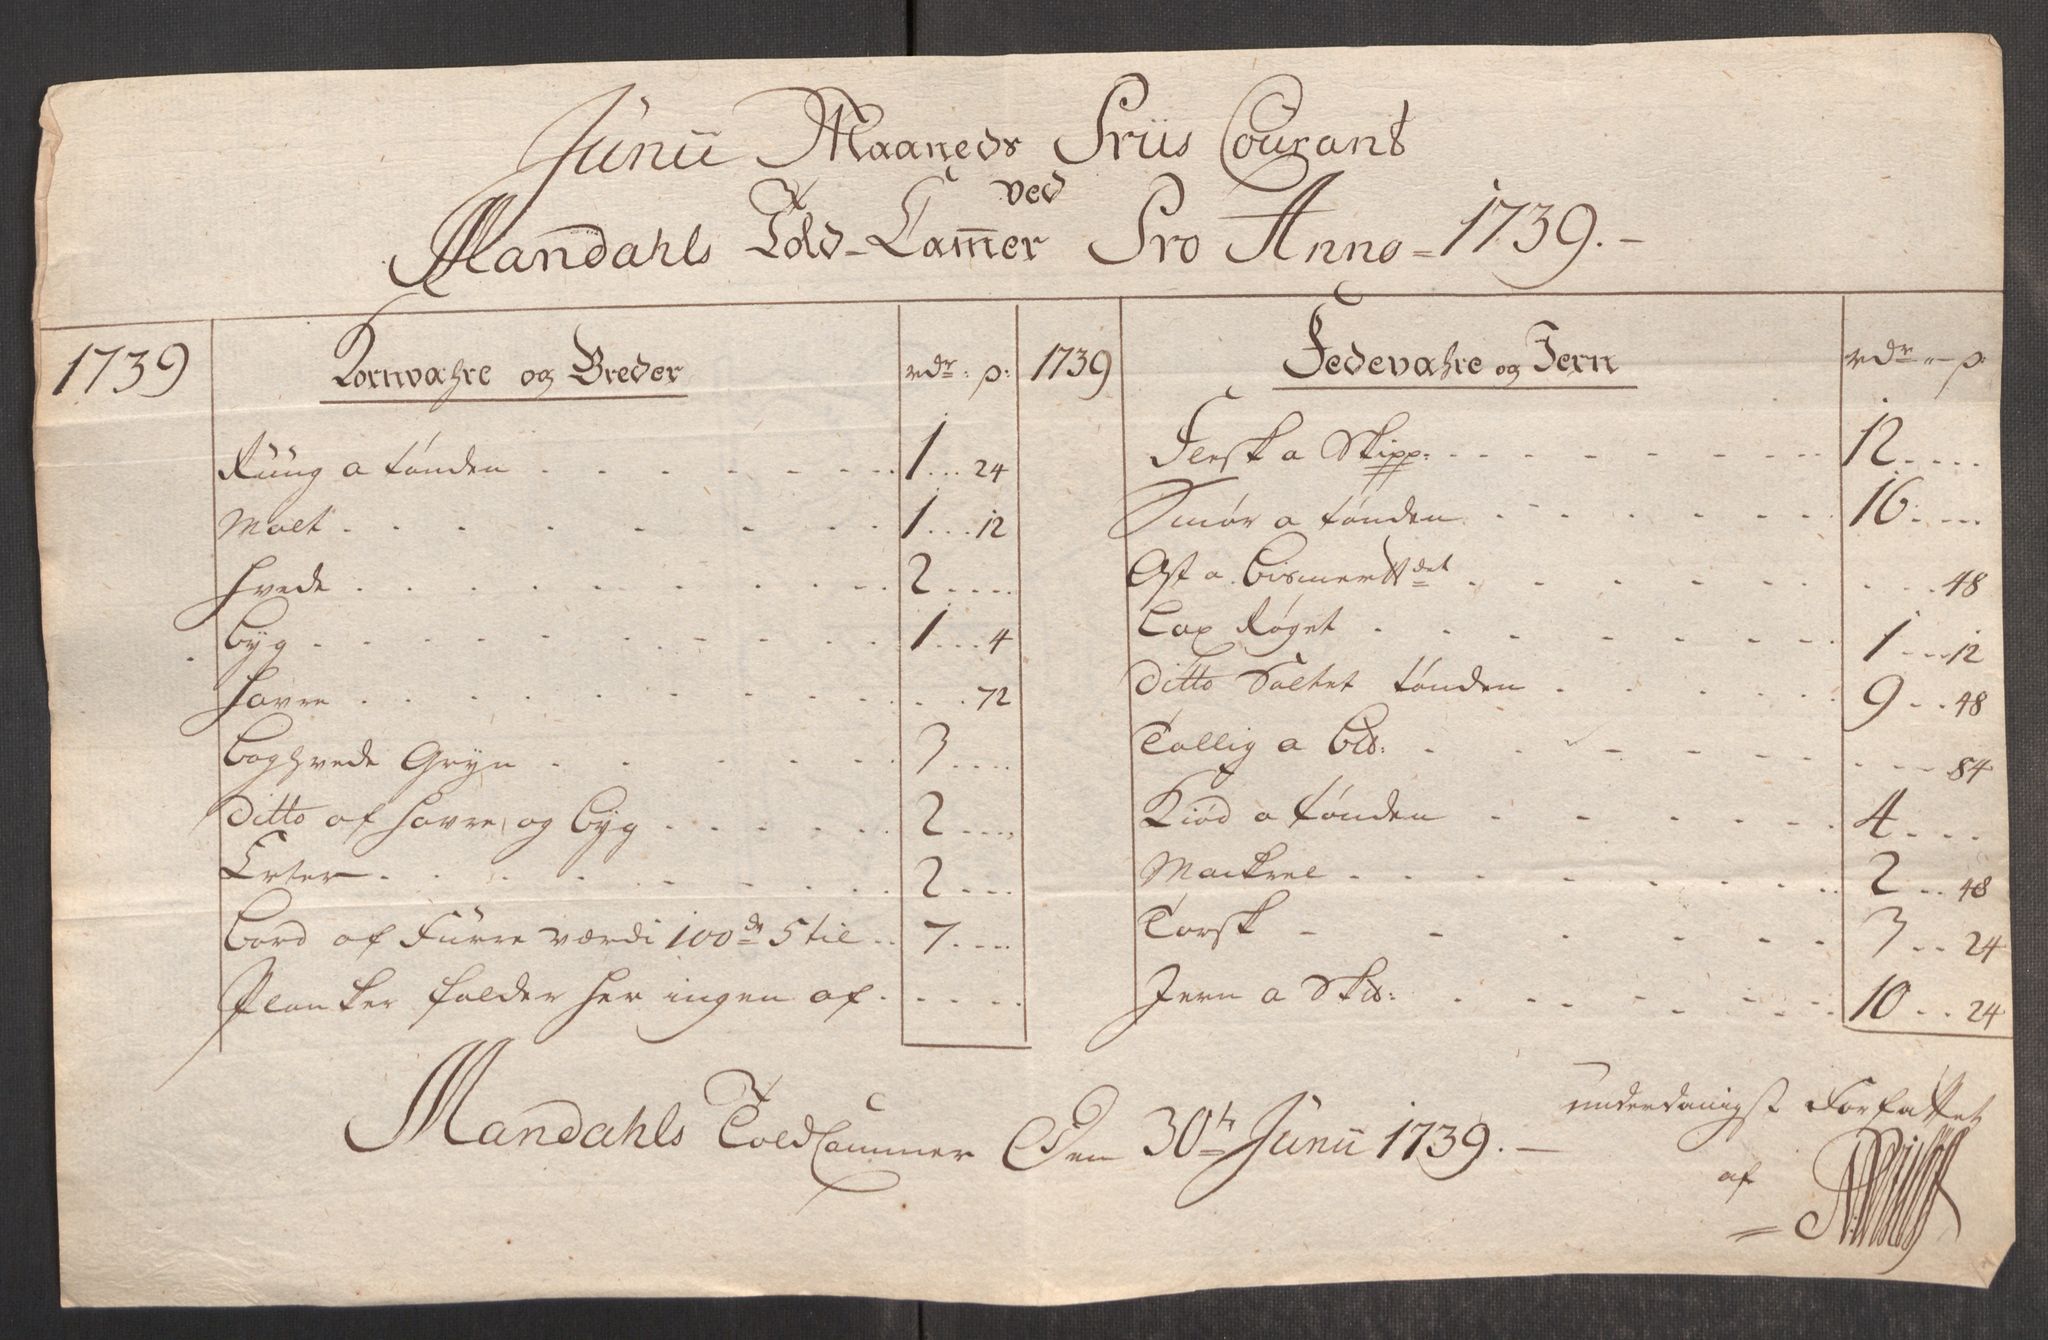 Junii Maaneds Priis Courant
ved
Mandahls Told-Cammer Pro Anno = 1739. -
1739 Kornvahre og Breder rdr: ß:
Rüüg a tønden 1 24
Malt 1 12
Hvede 2
Byg 1 4
Havre 72
Boghvede Gryn 3
Ditto af Havre, og Byg 2
Erter 2
Bord af Furre værdi 100de 5 til 7
Planker falder her ingen af
1739 Fedevahre og Jern rdr ß:
Flesk a Skipp: 12
Smør a tønden 16
Ost a Bismerpdet 48
Lax Røget 1 12
Ditto Saltet tønden 9 48
Tallig a Bpd: 84
Kiød a tønden 4
Mackrel 2 48
Torsk 3 24
Jern a Skpd: 10 24
Mandahls Told Cammer Den 30te Junii 1739. -
underdanigst Forfattet
af